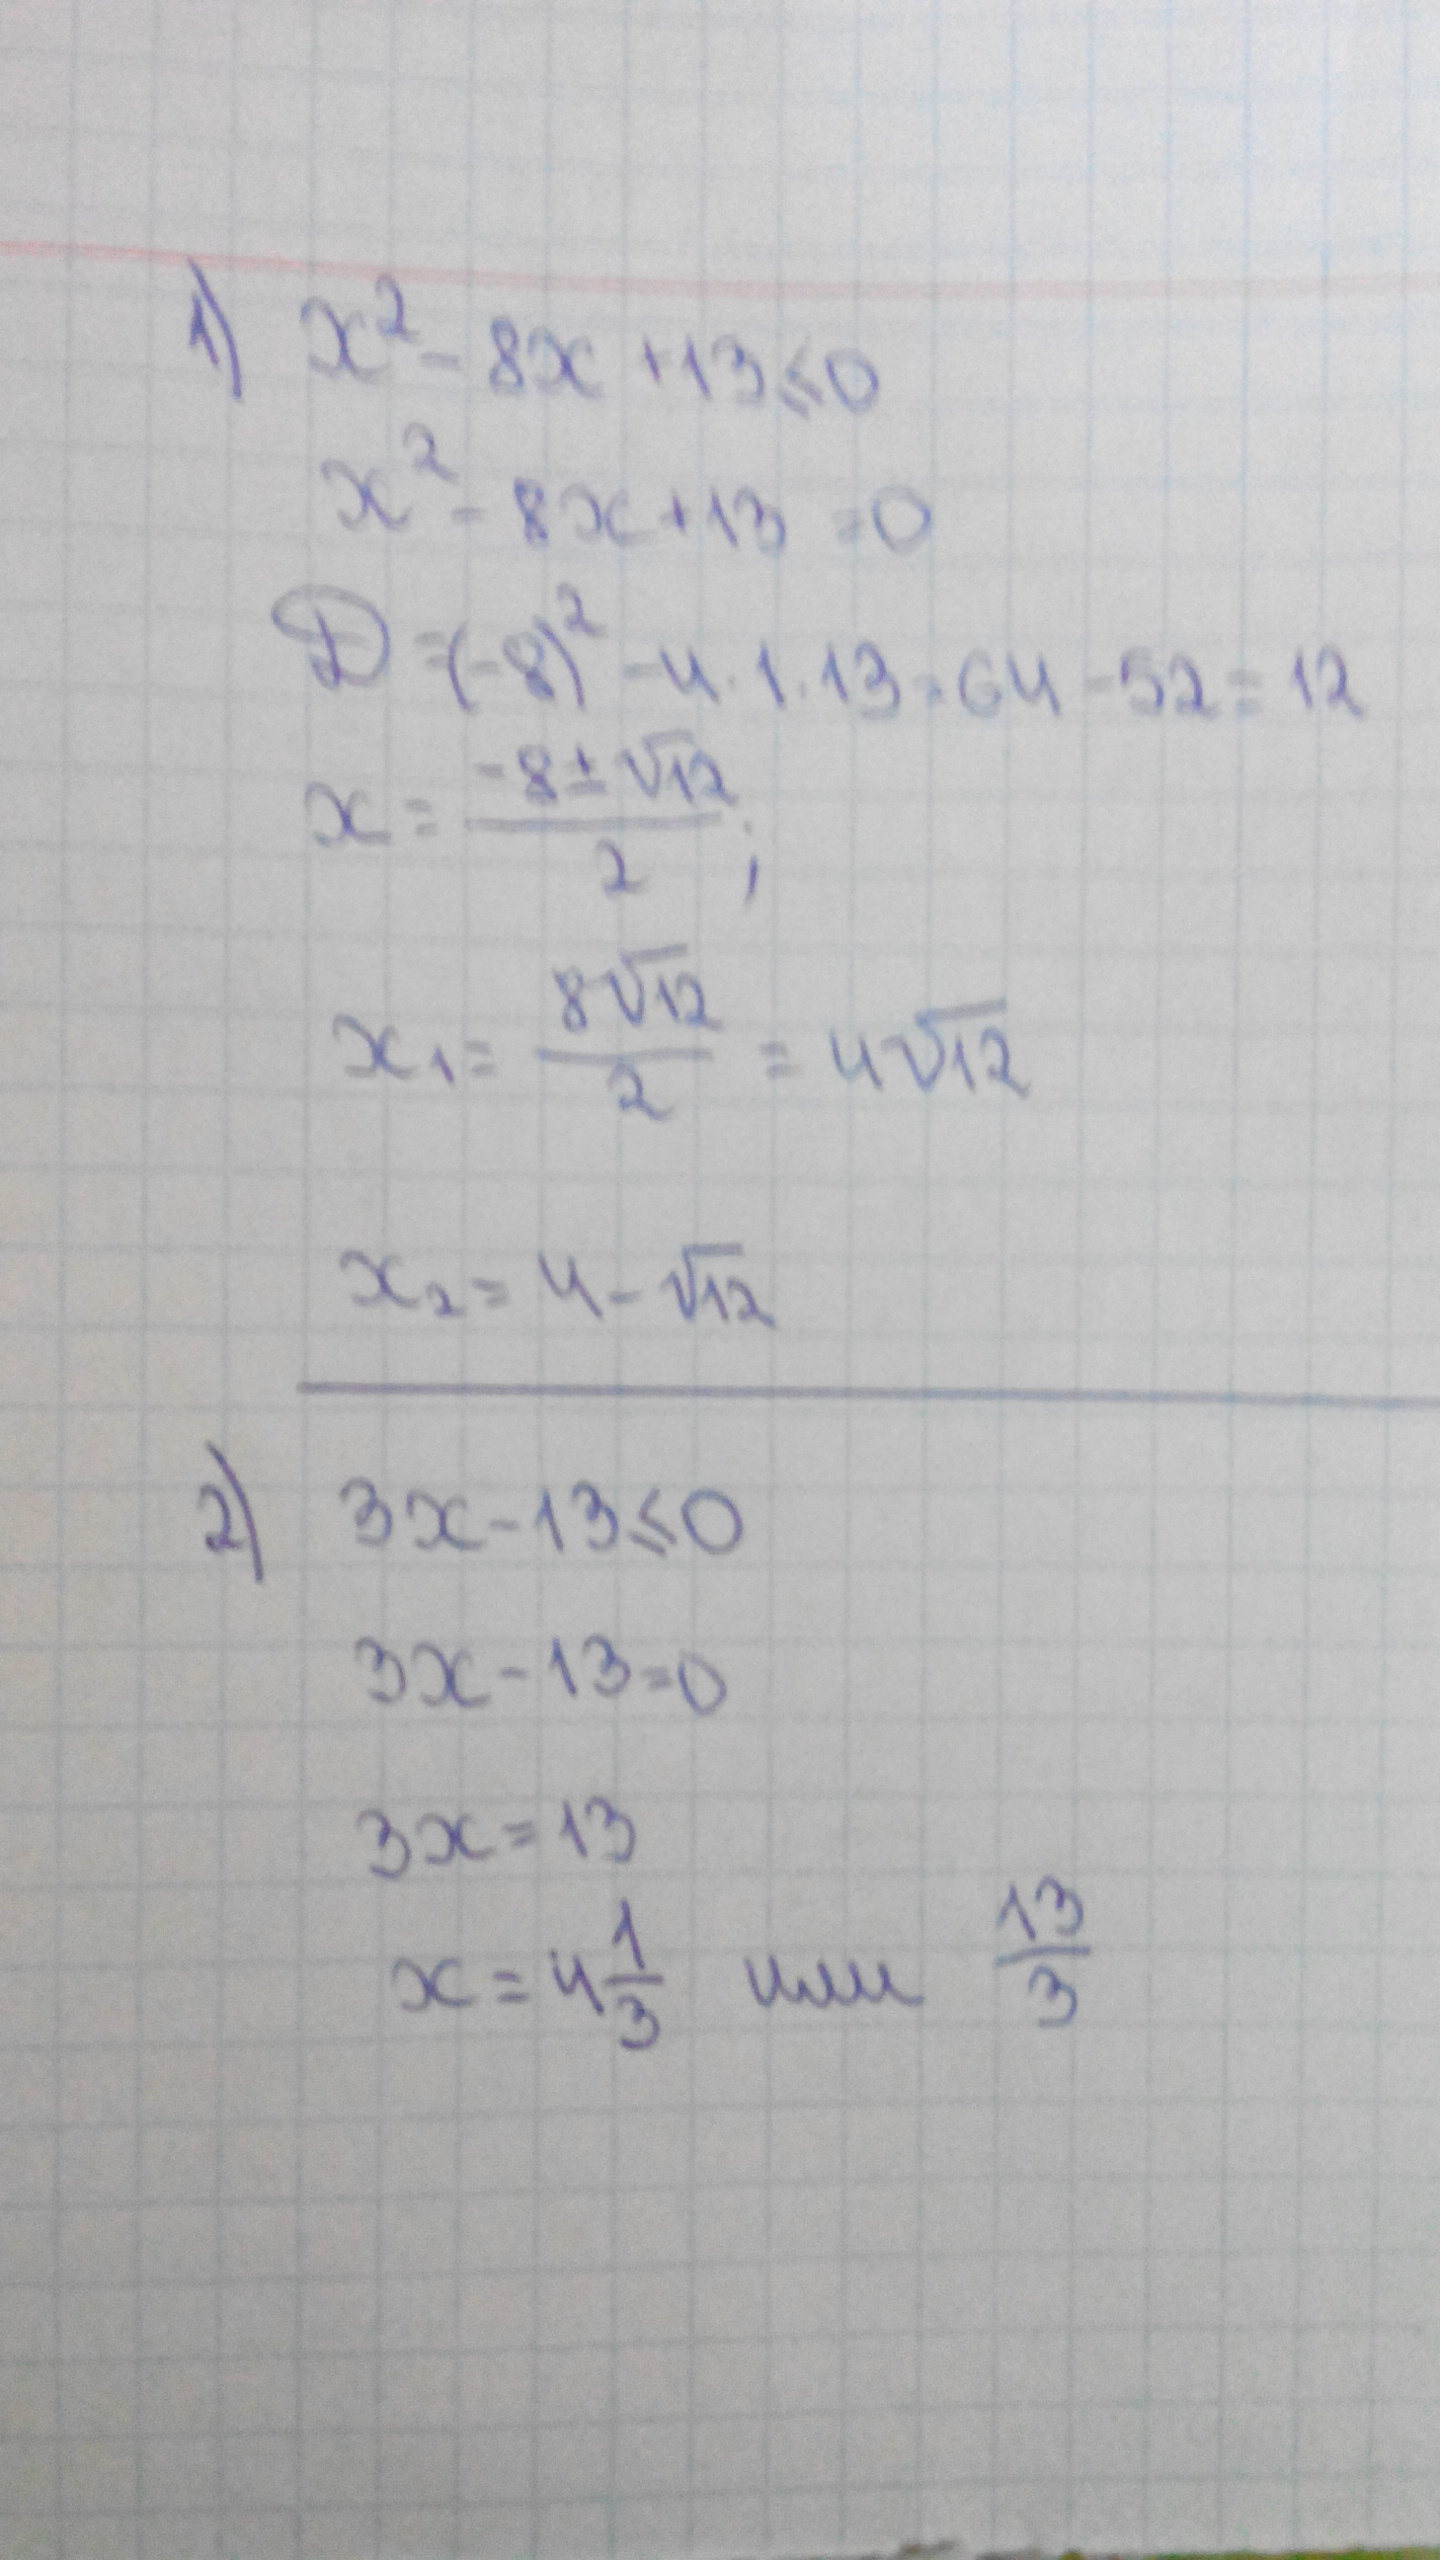 1) x² - 8x + 13 ≤ 0
x² - 8x + 13 = 0
D = (-8)² - 4 · 1 · 13 = 64 - 52 = 12
x = (-8 ± √12)/2 ;
x₁ = 8√12/2 = 4√12
x₂ = 4 - √12
2) 3x - 13 ≤ 0
3x - 13 = 0
3x = 13
x = 4 1/3 или 13/3